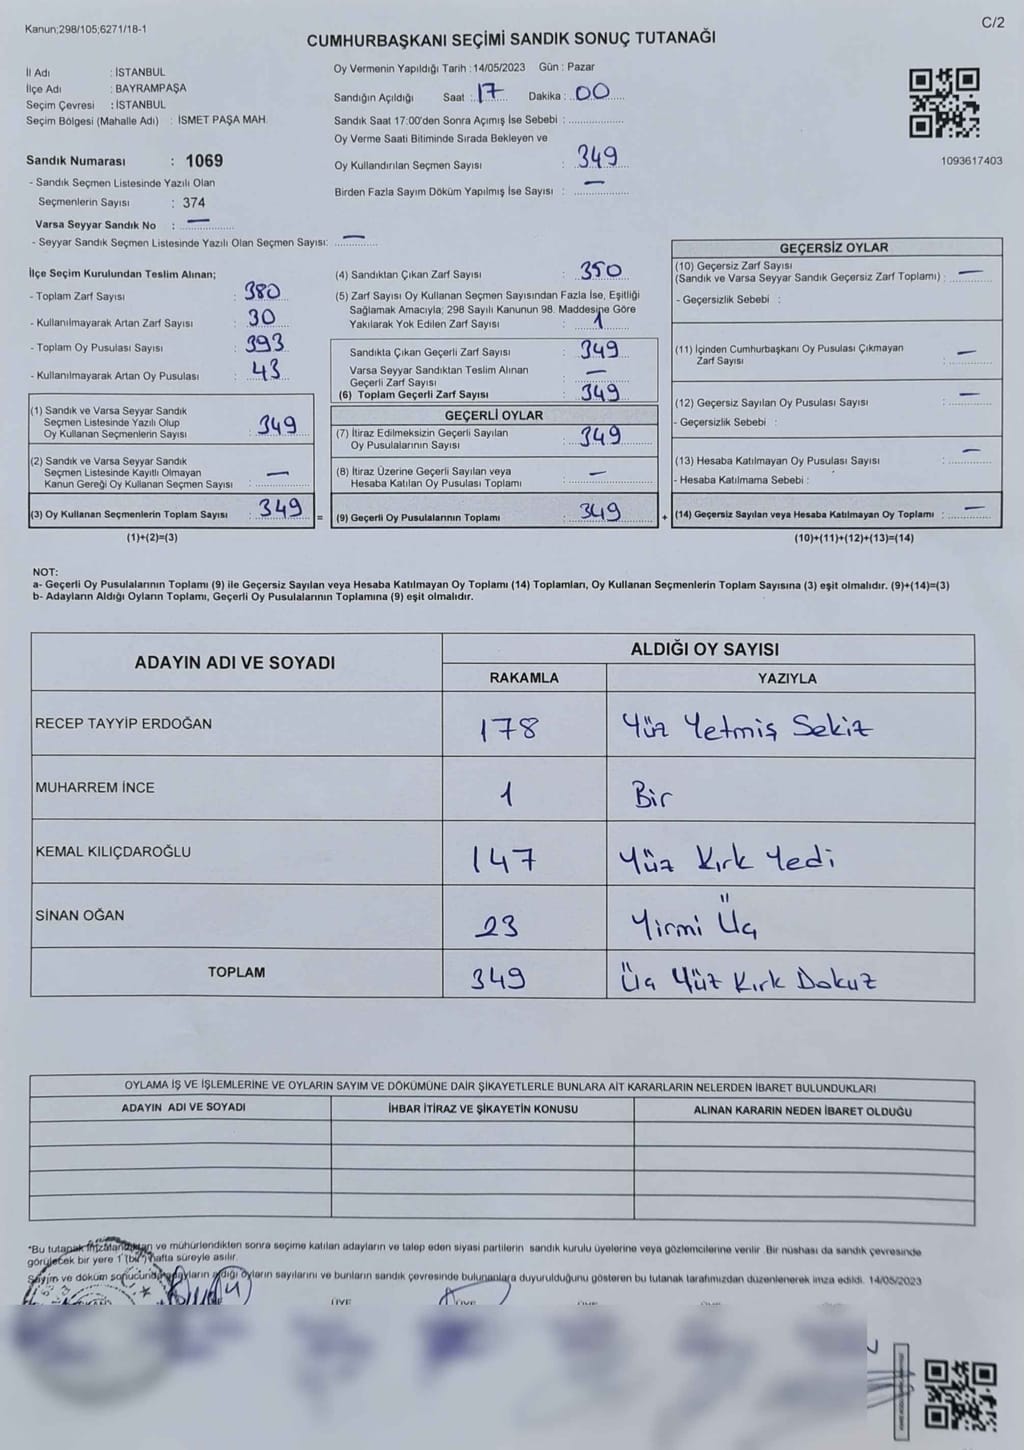 Kanun;298/105;6271/18-1
C/2
CUMHURBAŞKANI SEÇİMİ SANDIK SONUÇ TUTANAĞI
İl Adı : İSTANBUL
İlçe Adı : BAYRAMPAŞA
Seçim Çevresi : İSTANBUL
Seçim Bölgesi (Mahalle Adı) : İSMET PAŞA MAH.
Sandık Numarası : 1069
- Sandık Seçmen Listesinde Yazılı Olan
Seçmenlerin Sayısı : 374
Varsa Seyyar Sandık No : —
- Seyyar Sandık Seçmen Listesinde Yazılı Olan Seçmen Sayısı: —
Oy Vermenin Yapıldığı Tarih : 14/05/2023 Gün : Pazar
Sandığın Açıldığı Saat : 17 Dakika : 00
Sandık Saat 17:00'den Sonra Açımış İse Sebebi :
Oy Verme Saati Bitiminde Sırada Bekleyen ve
Oy Kullandırılan Seçmen Sayısı : 349
Birden Fazla Sayım Döküm Yapılmış İse Sayısı : —
1093617403
İlçe Seçim Kurulundan Teslim Alınan;
- Toplam Zarf Sayısı : 380
- Kullanılmayarak Artan Zarf Sayısı : 30
- Toplam Oy Pusulası Sayısı : 393
- Kullanılmayarak Artan Oy Pusulası : 43
(1) Sandık ve Varsa Seyyar Sandık
Seçmen Listesinde Yazılı Olup
Oy Kullanan Seçmenlerin Sayısı : 349
(2) Sandık ve Varsa Seyyar Sandık
Seçmen Listesinde Kayıtlı Olmayan
Kanun Gereği Oy Kullanan Seçmen Sayısı : —
(3) Oy Kullanan Seçmenlerin Toplam Sayısı : 349 =
(1)+(2)=(3)
(4) Sandıktan Çıkan Zarf Sayısı : 350
(5) Zarf Sayısı Oy Kullanan Seçmen Sayısından Fazla İse, Eşitliği
Sağlamak Amacıyla; 298 Sayılı Kanunun 98. Maddesine Göre
Yakılarak Yok Edilen Zarf Sayısı : 1
Sandıkta Çıkan Geçerli Zarf Sayısı : 349
Varsa Seyyar Sandıktan Teslim Alınan
Geçerli Zarf Sayısı : —
(6) Toplam Geçerli Zarf Sayısı : 349
GEÇERLİ OYLAR
(7) İtiraz Edilmeksizin Geçerli Sayılan
Oy Pusulalarının Sayısı : 349
(8) İtiraz Üzerine Geçerli Sayılan veya
Hesaba Katılan Oy Pusulası Toplamı : —
(9) Geçerli Oy Pusulalarının Toplamı : 349 +
GEÇERSİZ OYLAR
(10) Geçersiz Zarf Sayısı
(Sandık ve Varsa Seyyar Sandık Geçersiz Zarf Toplamı) : —
- Geçersizlik Sebebi :
(11) İçinden Cumhurbaşkanı Oy Pusulası Çıkmayan
Zarf Sayısı : —
(12) Geçersiz Sayılan Oy Pusulası Sayısı : —
- Geçersizlik Sebebi :
(13) Hesaba Katılmayan Oy Pusulası Sayısı : —
- Hesaba Katılmama Sebebi :
(14) Geçersiz Sayılan veya Hesaba Katılmayan Oy Toplamı : —
(10)+(11)+(12)+(13)=(14)
NOT:
a- Geçerli Oy Pusulalarının Toplamı (9) ile Geçersiz Sayılan veya Hesaba Katılmayan Oy Toplamı (14) Toplamları, Oy Kullanan Seçmenlerin Toplam Sayısına (3) eşit olmalıdır. (9)+(14)=(3)
b- Adayların Aldığı Oyların Toplamı, Geçerli Oy Pusulalarının Toplamına (9) eşit olmalıdır.
ADAYIN ADI VE SOYADI
ALDIĞI OY SAYISI
RAKAMLA YAZIYLA
RECEP TAYYİP ERDOĞAN 178 Yüz Yetmiş Sekiz
MUHARREM İNCE 1 Bir
KEMAL KILIÇDAROĞLU 147 Yüz Kırk Yedi
SİNAN OĞAN 23 Yirmi Üç
TOPLAM 349 Üç Yüz Kırk Dokuz
OYLAMA İŞ VE İŞLEMLERİNE VE OYLARIN SAYIM VE DÖKÜMÜNE DAİR ŞİKAYETLERLE BUNLARA AİT KARARLARIN NELERDEN İBARET BULUNDUKLARI
ADAYIN ADI VE SOYADI İHBAR İTİRAZ VE ŞİKAYETİN KONUSU ALINAN KARARIN NEDEN İBARET OLDUĞU
*Bu tutanak imzalandıktan ve mühürlendikten sonra seçime katılan adayların ve talep eden siyasi partilerin sandık kurulu üyelerine veya gözlemcilerine verilir. Bir nüshası da sandık çevresinde
görülecek bir yere 1 (bir) hafta süreyle asılır.
Sayım ve döküm sonucunda adayların aldığı oyların sayılarını ve bunların sandık çevresinde bulunanlara duyurulduğunu gösteren bu tutanak tarafımızdan düzenlenerek imza edildi. 14/05/2023
ÜYE ÜYE